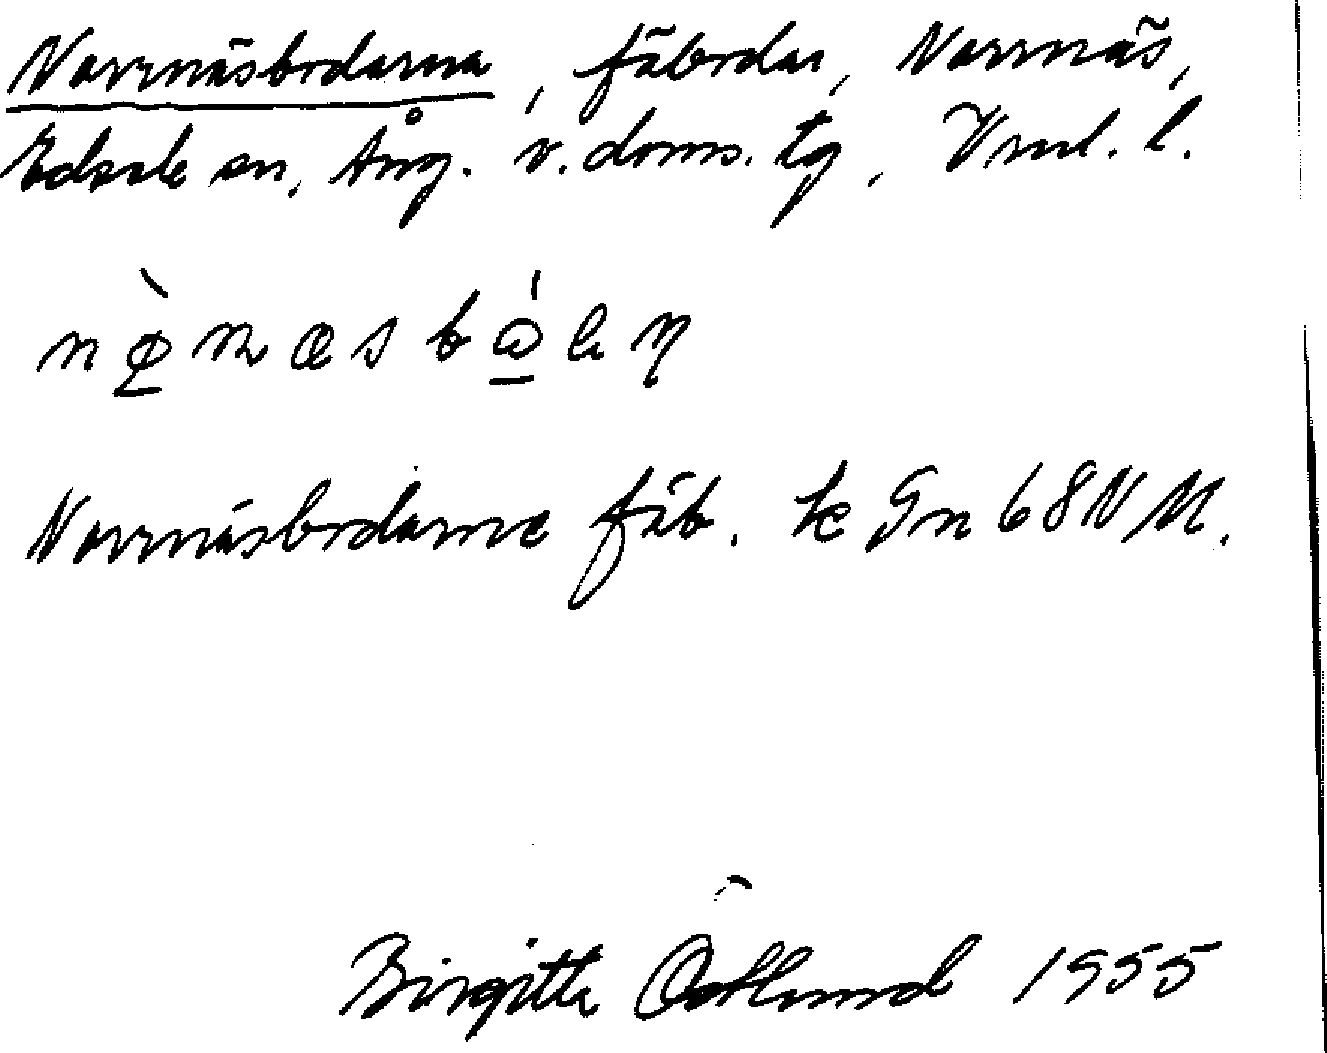 Norrnäsbodarna, fäbodar, Norrnäs,
Edsele sn, Ång. v. doms. tg, Vnrl. l.
Norrnäsbodarna fäb. k Gn 68 NM.
Birgitta Östlund 1955